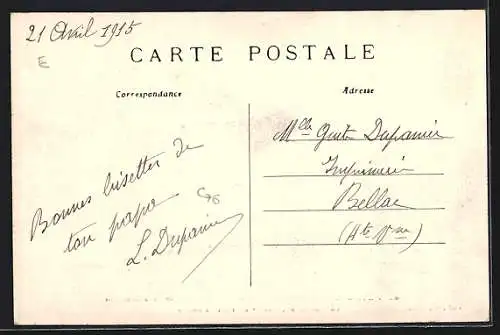 21 Avril 1915
E
CARTE POSTALE
Correspondance
Adresse
Bonnes bisettes de
ton papa
L. Dupanier
Mlle Dupanier
Imprimerie
Bellac
(Hte Vne)